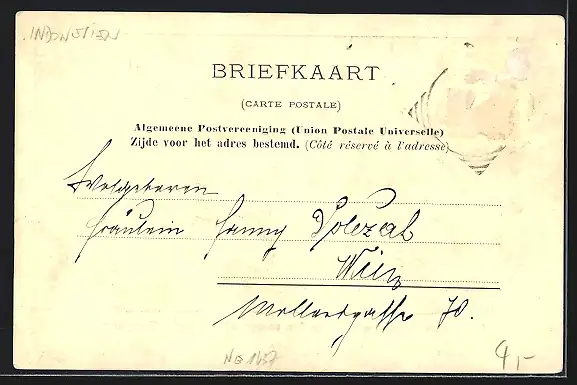 INDONESIEN
BRIEFKAART
(CARTE POSTALE)
Algemeene Postvereeniging (Union Postale Universelle)
Zijde voor het adres bestemd. (Côté réservé à l'adresse)
Wolgeboren
Fräulein Fanny Dolezal
Wien
Mollardgasse 70.
4,-